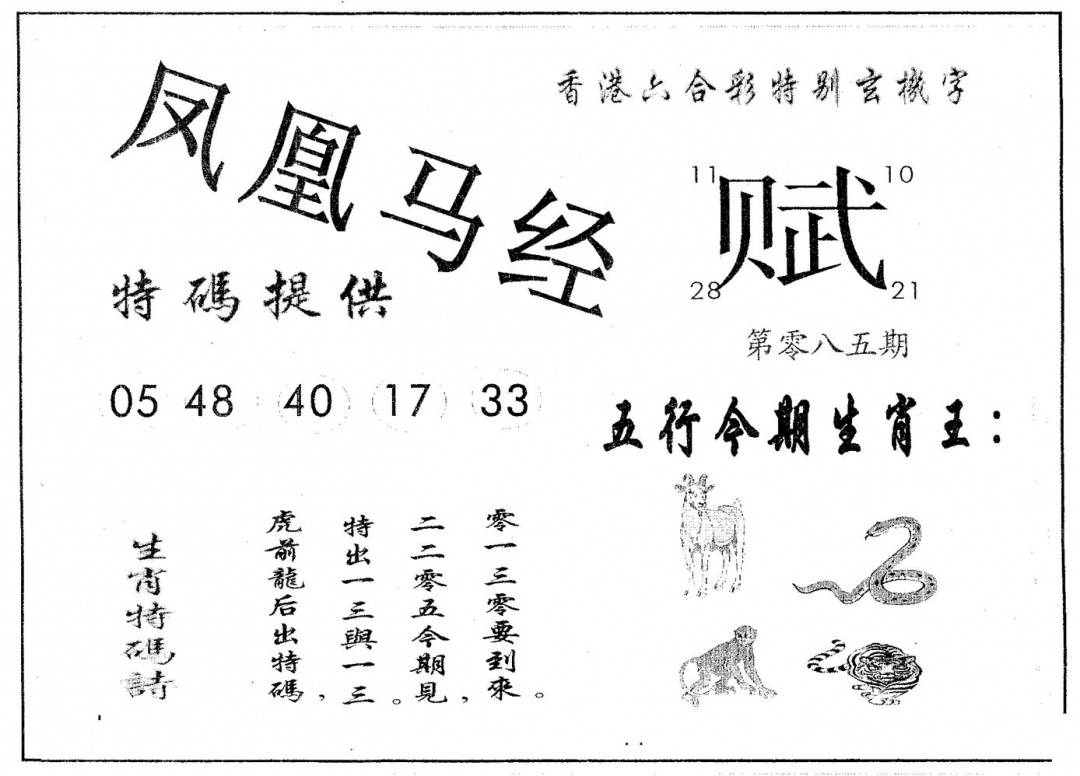 香港六合彩特别玄機字
凤凰马经
11 10
赋
28 21
特碼提供
第零八五期
05 48 40 17 33
五行今期生肖王：
零一三零要到來。
二二零五今期見，
特出一三與一三。
虎前龍后出特碼，
生肖特碼詩